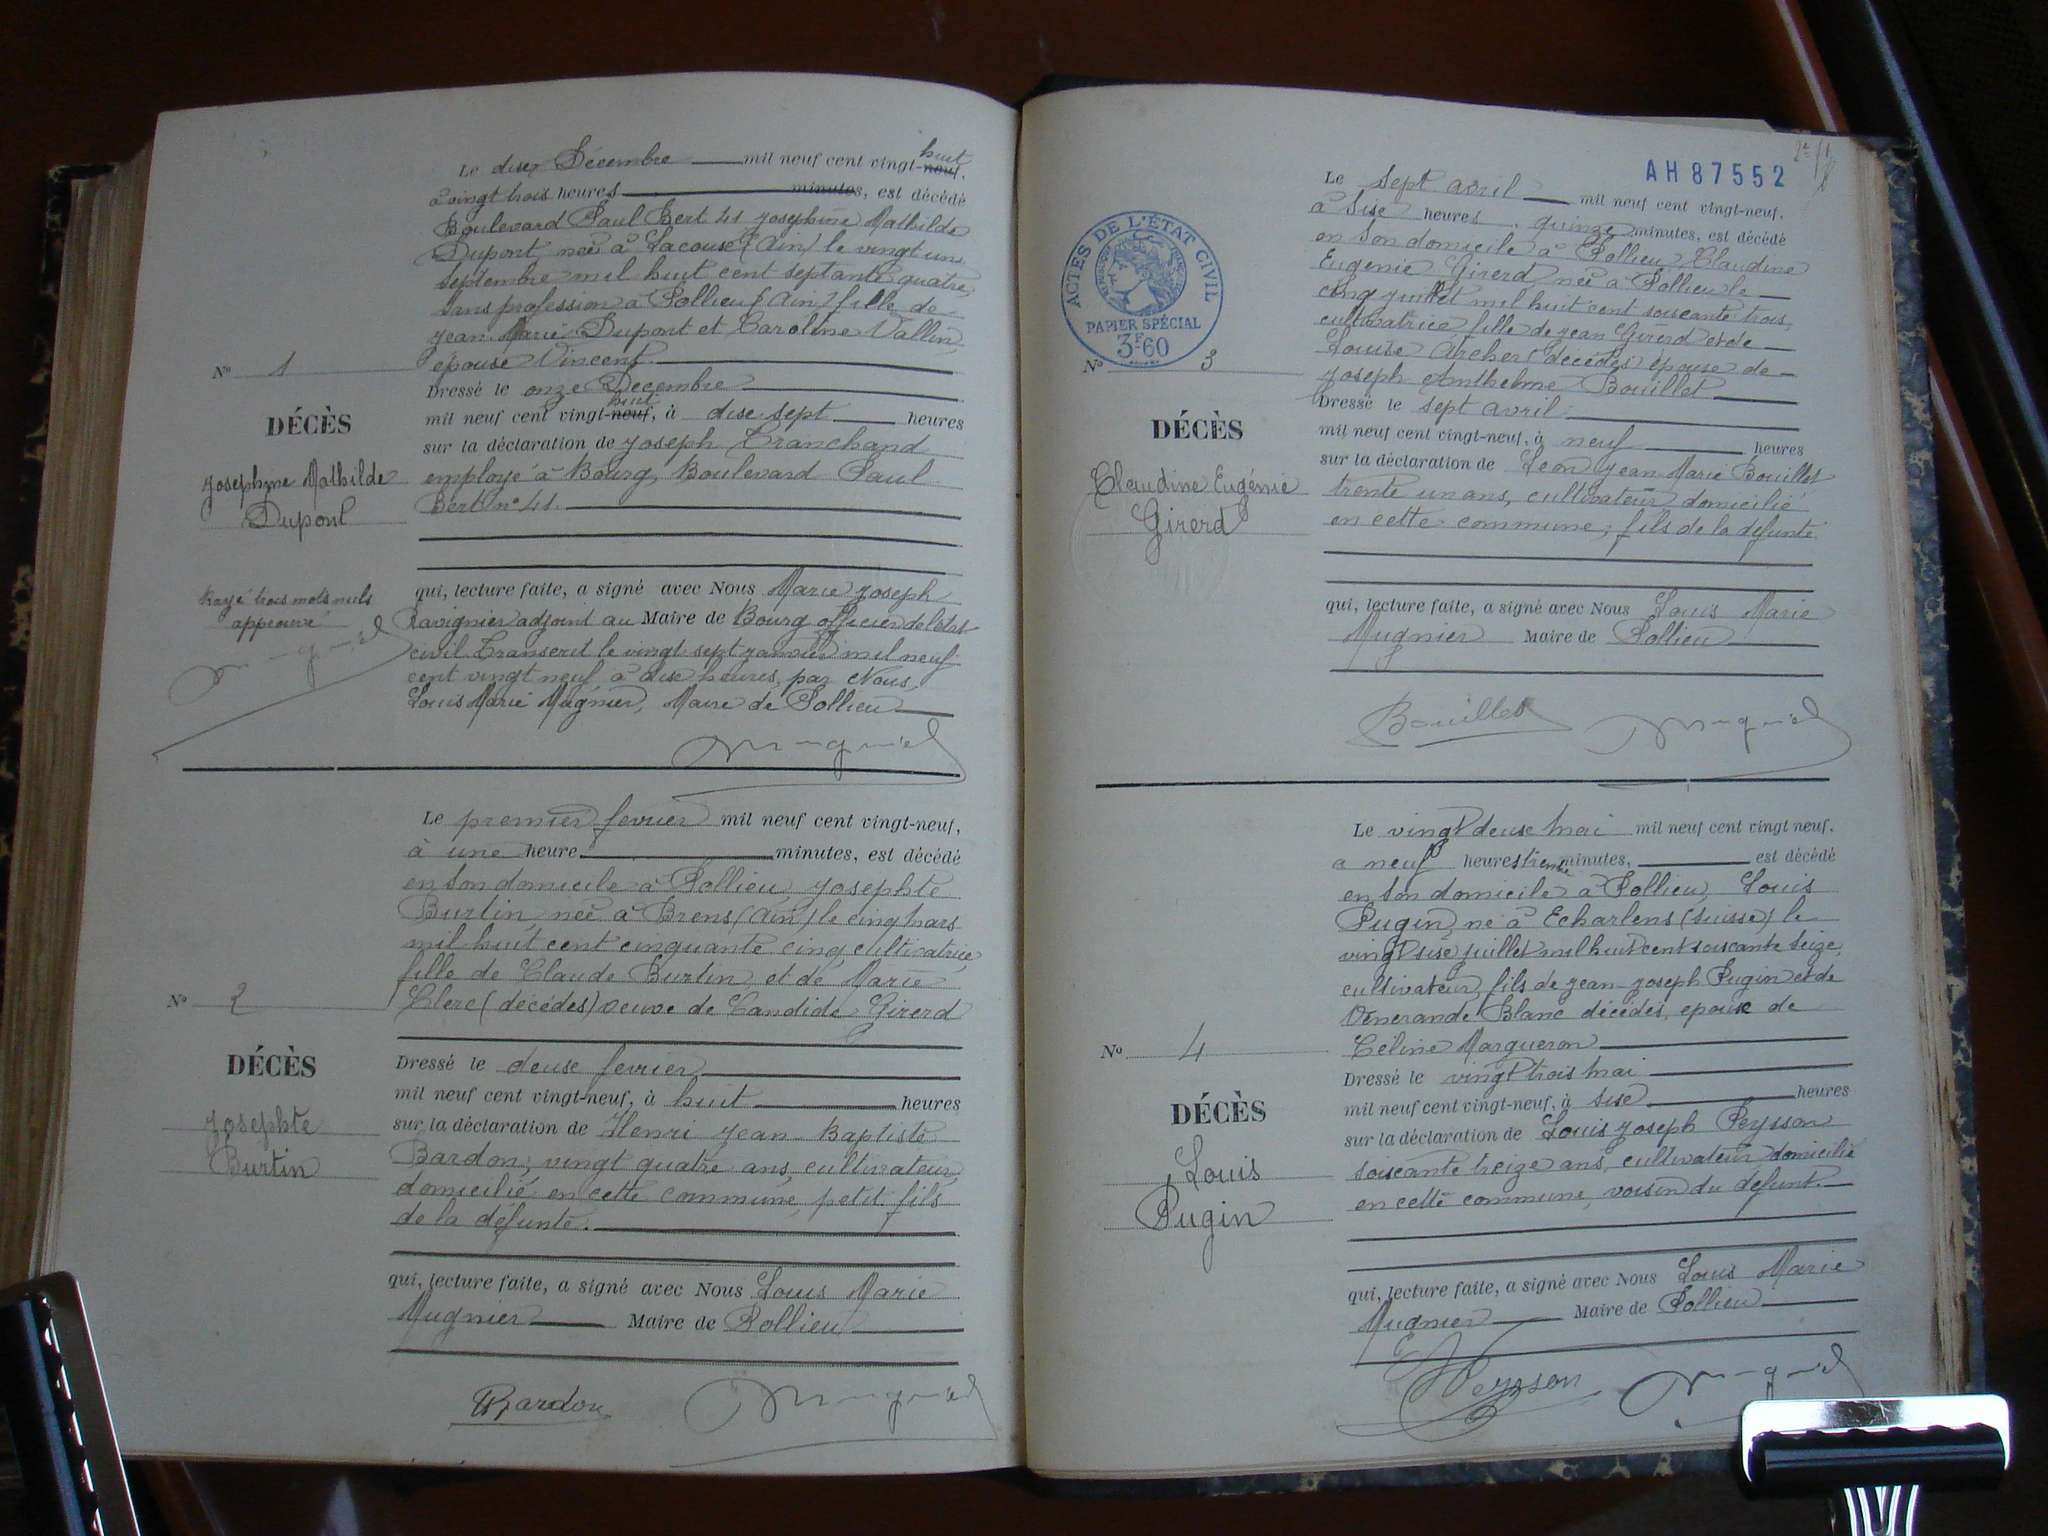 Le dix Décembre mil neuf cent vingt-neuf. huit
à vingt trois heures minutes, est décédé
Boulevard Paul Bert 41 Joséphine Mathilde
Dupont, née à Lacoux (Ain) le vingt un
septembre mil huit cent septante quatre,
sans profession à Pollieu (Ain) fille de
Jean Marie Dupont et Caroline Vallin,
épouse Vincent
Dressé le onze Décembre
mil neuf cent vingt-neuf, huit à dise sept heures
sur la déclaration de Joseph Tranchand
employé à Bourg, Boulevard Paul
Bert n° 41.
qui, lecture faite, a signé avec Nous Marie Joseph
Ravignier adjoint au Maire de Bourg officier de l'état
civil Transcrit le vingt sept janvier mil neuf
cent vingt neuf à dise heures, par Nous,
Louis Marie Mugnier, Maire de Pollieu
Mugnier
N° 1
DÉCÈS
Joséphine Mathilde
Dupont
Rayé trois mots nuls
approuvé
Mugnier
Le premier fevrier mil neuf cent vingt-neuf,
à une heure minutes, est décédé
en son domicile à Pollieu Josephte
Burtin, née à Brens (Ain) le cinq Mars
mil huit cent cinquante cinq, cultivatrice,
fille de Claude Burtin et de Marie
Clerc (décédés) veuve de Candide Girerd
N° 2
DÉCÈS
Josephte
Burtin
Dressé le deuse fevrier
mil neuf cent vingt-neuf, à huit heures
sur la déclaration de Henri Jean-Baptiste
Bardon, vingt quatre ans, cultivateur,
domicilié en cette commune, petit-fils
de la défunte.
qui, lecture faite, a signé avec Nous Louis Marie
Mugnier Maire de Pollieu
Bardon Mugnier
AH 87552
ACTES DE L'ÉTAT CIVIL
PAPIER SPÉCIAL
3F60
Le sept avril mil neuf cent vingt-neuf.
à sise heures quinze minutes, est décédé
en son domicile à Pollieu, Claudine
Eugénie Girerd, née à Pollieu le
cinq juillet mil huit cent soiscante trois,
cultivatrice fille de Jean Girerd et de
Louise Archer (décédés) épouse de
Joseph Anthelme Bouillet
N° 3
DÉCÈS
Claudine Eugénie
Girerd
Dressé le sept avril
mil neuf cent vingt-neuf, à neuf heures
sur la déclaration de Léon Jean-Marie Bouillet
trente un ans, cultivateur domicilié
en cette commune, fils de la défunte
qui, lecture faite, a signé avec Nous Louis Marie
Mugnier Maire de Pollieu
Bouillet Mugnier
Le vingt deuse Mai mil neuf cent vingt neuf.
a neuf heures trente minutes, est décédé
en son domicile à Pollieu, Louis
Pugin, né à Echarlens (Suisse) le
vingt sise juillet mil huit cent soiscante seize,
cultivateur, fils de Jean-Joseph Pugin et de
Vénérande Blanc décédés, epoux de
Céline Margueron
N° 4
DÉCÈS
Louis
Pugin
Dressé le vingt trois Mai
mil neuf cent vingt-neuf, à sise heures
sur la déclaration de Louis Joseph Peysson
soiscante treize ans, cultivateur domicilié
en cette commune, voisin du défunt.
qui, lecture faite, a signé avec Nous Louis Marie
Mugnier Maire de Pollieu
Peysson Mugnier